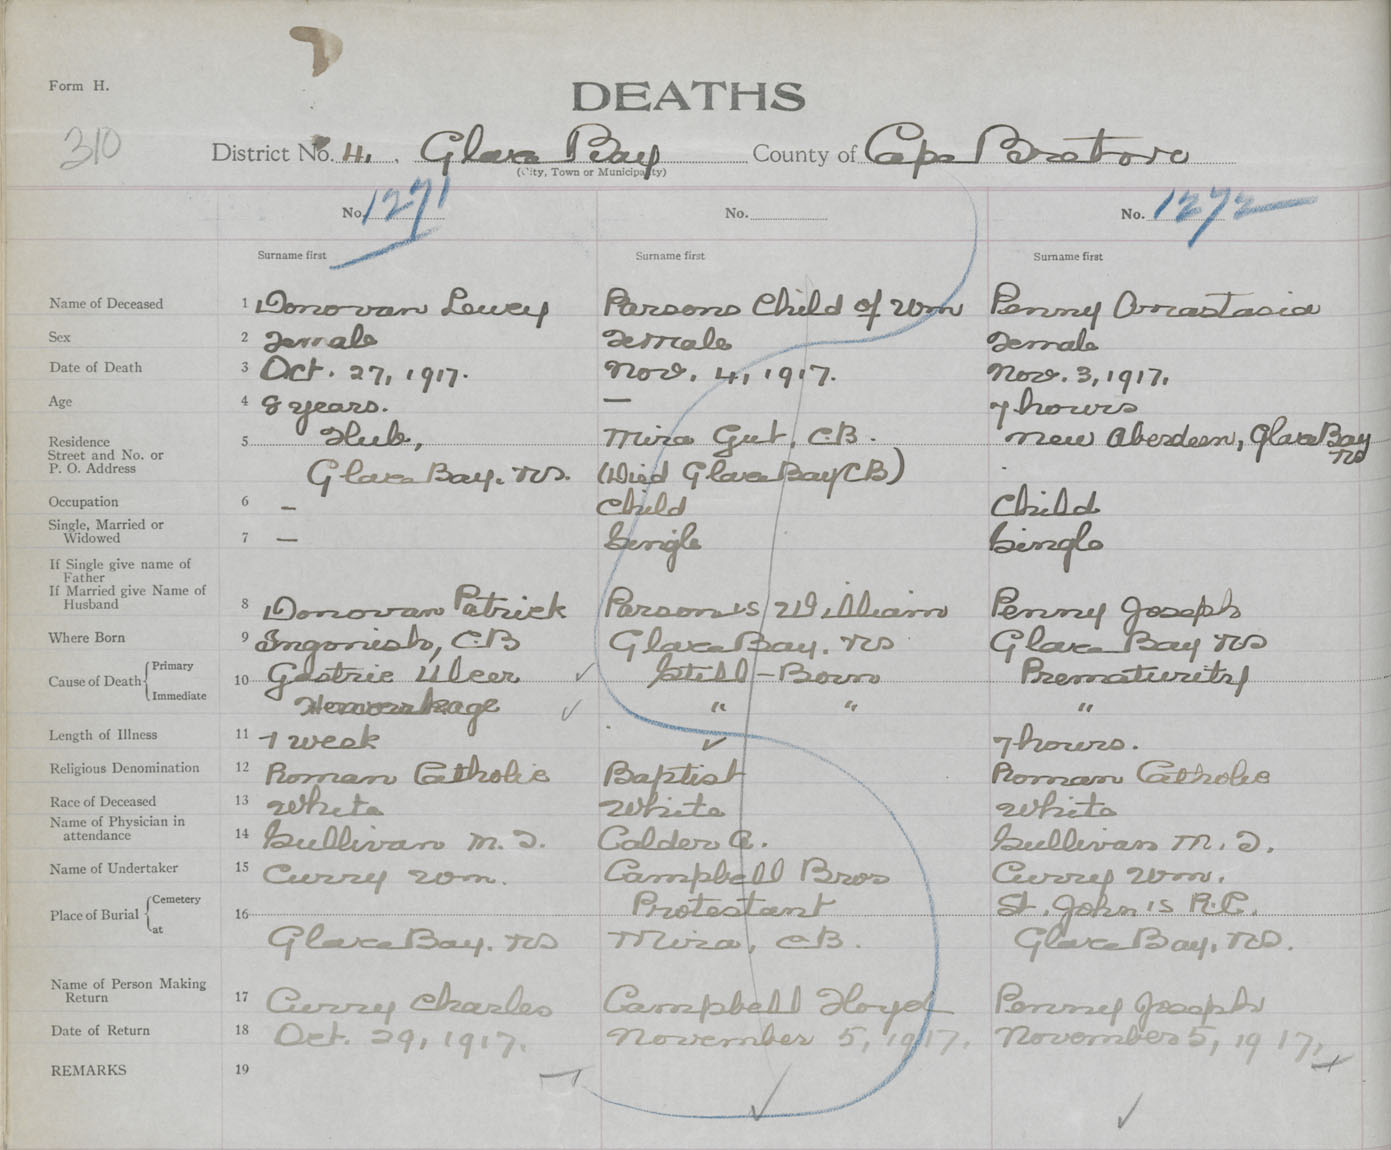 Form H.
DEATHS
310
District No. 4. Glace Bay County of Cape Breton
(City, Town or Municipality)
No. 1271 No. No. 1272
Surname first Surname first Surname first
Name of Deceased 1 Donovan Lewey Parsons Child of Wm Penny Annastasia
Sex 2 Female Female Female
Date of Death 3 Oct. 27, 1917. Nov. 4, 1917. Nov. 3, 1917.
Age 4 8 years. — 7 hours
Residence 5 Hub, Mira Gut, C.B. New Aberdeen, Glace Bay
Street and No. or NS
P. O. Address Glace Bay. NS. (Died Glace Bay CB)
Occupation 6 – Child Child
Single, Married or
Widowed 7 – Single Single
If Single give name of
Father
If Married give Name of
Husband 8 Donovan Patrick Parson's William Penny Joseph
Where Born 9 Ingonish, C.B Glace Bay. NS Glace Bay NS
Cause of Death Primary 10 Gastric Ulcer ✓ Still-Born Prematurity
Immediate Hemorrhage ✓ " " "
Length of Illness 11 1 week ✓ 7 hours.
Religious Denomination 12 Roman Catholic Baptist Roman Catholic
Race of Deceased 13 White White White
Name of Physician in
attendance 14 Sullivan M. T. Calder A. Sullivan M. T.
Name of Undertaker 15 Curry Wm. Campbell Bros Curry Wm.
Place of Burial Cemetery 16 Protestant St. John's R.C.
at Glace Bay. NS Mira, C.B. Glace Bay, NS.
Name of Person Making
Return 17 Curry Charles Campbell Floyd Penny Joseph
Date of Return 18 Oct. 29, 1917. November 5, 1917. November 5, 1917.
REMARKS 19